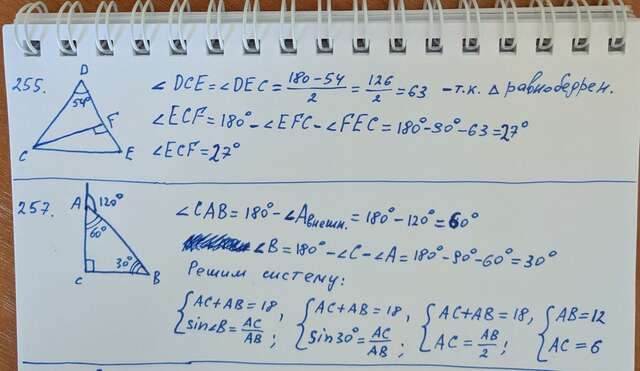 255.
D
54°
F
C
E
∠DCE = ∠DEC = (180-54)/2 = 126/2 = 63 - т.к. Δ равнобедрен.
∠ECF = 180° - ∠EFC - ∠FEC = 180° - 90° - 63 = 27°
∠ECF = 27°
257.
A
120°
60°
30°
C
B
∠CAB = 180° - ∠Aвнешн. = 180° - 120° = 60°
∠B = 180° - ∠C - ∠A = 180° - 90° - 60° = 30°
Решим систему:
{AC + AB = 18, {AC + AB = 18, {AC + AB = 18, {AB = 12
sin∠B = AC/AB; sin30° = AC/AB; AC = AB/2; AC = 6